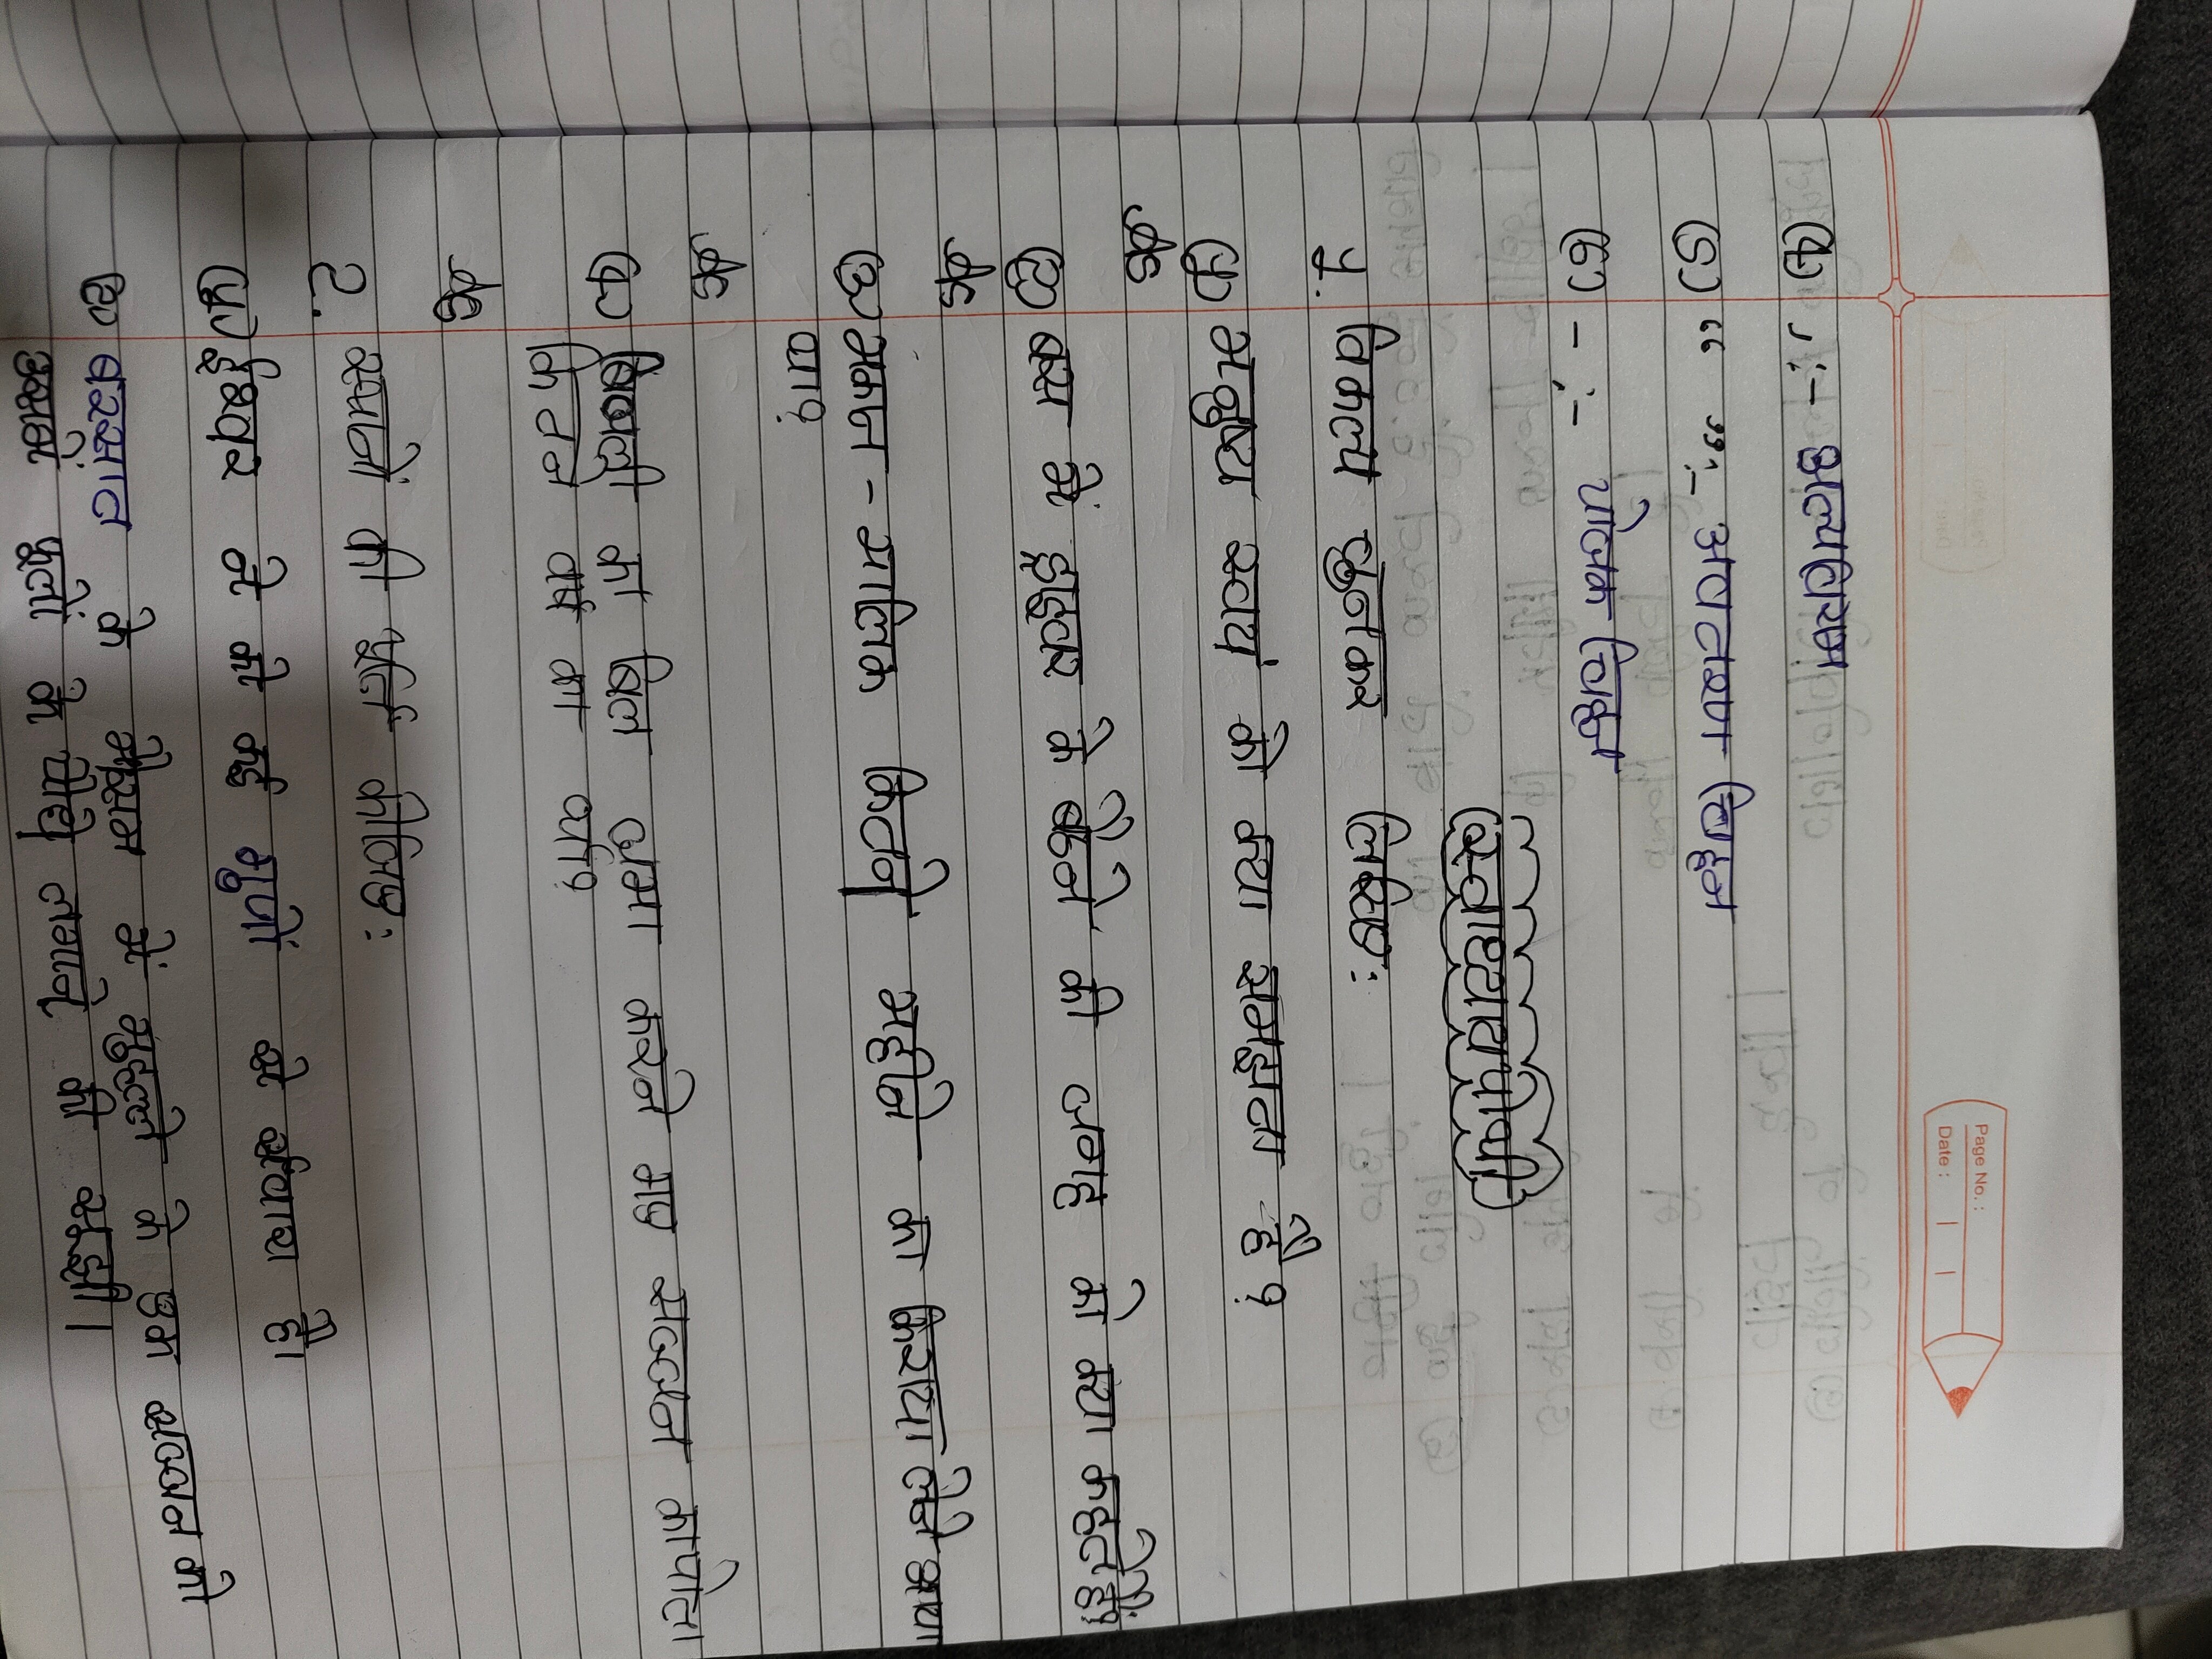 Page No.:
Date :
(4) , :- अल्पविराम
(5) “ ” :- अवतरण चिह्न
(6) - :- योजक चिह्न
1. विकल्प चुनकर लिखिए:
(1) मनुष्य स्वयं को क्या समझता है?
उ
(2) बस में ड्राइवर के बैठने की जगह को क्या कहते हैं?
उ
(3) मकान - मालिक कितने महीने का किराया लेने आया
था?
उ
(4) बिजली का बिल जमा करने गए सज्जन
कितने वर्ष का था?
उ
2. स्थानों की पूर्ति कीजिए:
(1) ईश्वर ने को कई गुणों से सँवारा है।
(2) बरसात के मौसम में मुहल्ले के एक सज्जन को
फूलों के पौधे लगाने की सूझी।